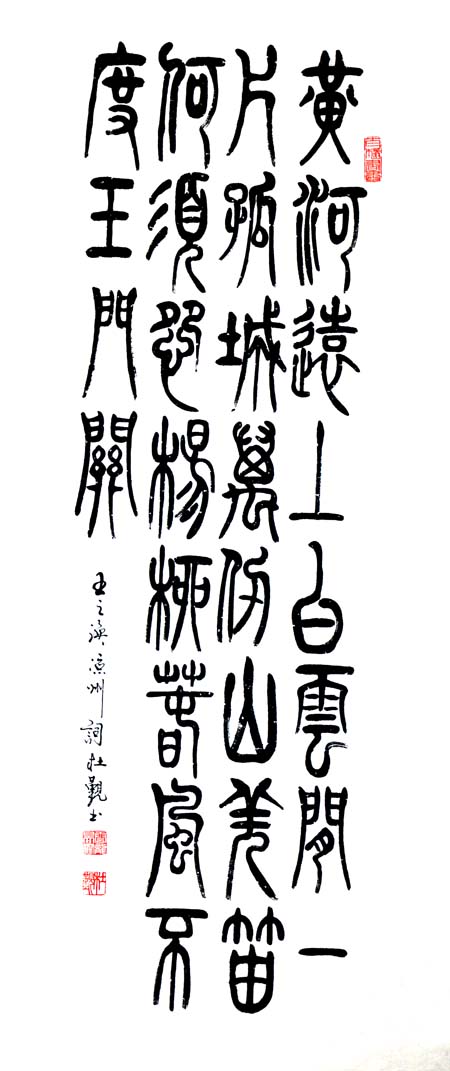 黃河遠上白雲間一
片孤城萬仞山羌笛
何須怨楊柳春風不
度玉門關
王之渙涼州詞杜觀书